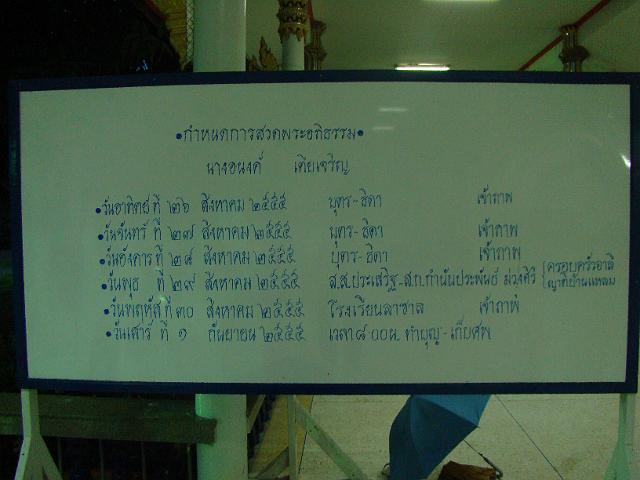 •กำหนดการสวดพระอภิธรรม•
นางอนงค์ เทียเจริญ
•วันอาทิตย์ ที่ ๒๖ สิงหาคม ๒๕๕๕ บุตร-ธิดา เจ้าภาพ
•วันจันทร์ ที่ ๒๗ สิงหาคม ๒๕๕๕ บุตร-ธิดา เจ้าภาพ
•วันอังคาร ที่ ๒๘ สิงหาคม ๒๕๕๕ บุตร-ธิดา เจ้าภาพ
•วันพุธ ที่ ๒๙ สิงหาคม ๒๕๕๕ ส.ส.ประเสริฐ-ส.ท.กำนันประพันธ์ ม่วงศิริ ครอบครัวอาลี
ญาติบ้านแหลม
•วันพฤหัส ที่ ๓๐ สิงหาคม ๒๕๕๕ โรงเรียนลาซาล เจ้าภาพ
•วันเสาร์ ที่ ๑ กันยายน ๒๕๕๕ เวลา ๘.๐๐น. ทำบุญ-เก็บศพ